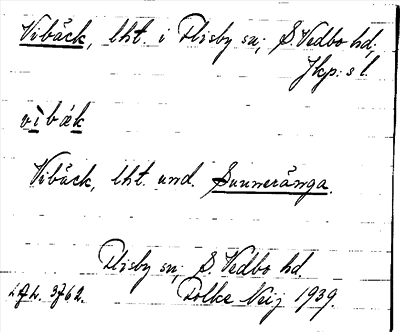 Vibäck, lht. i Flisby sn; S. Vedbo hd;
Jkp:s l.
vìbäk
Vibäck, lht. und. Sunneränga.
Flisby sn; S. Vedbo hd.
Folke Neij 1939.
3762.